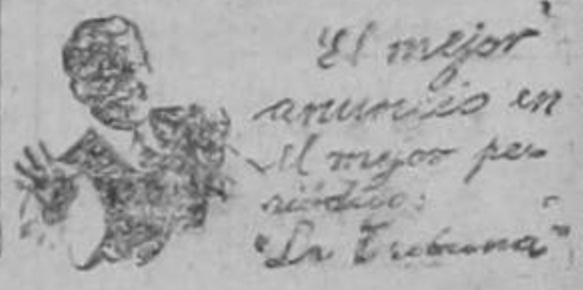 "El mejor
anuncio en
el mejor pe-
riódico:
"La Tribuna"